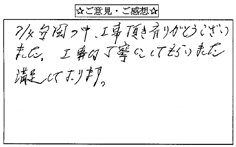 ☆ご意見・ご感想☆
工事頂き有りがとうござい
ました。工事は丁寧にしてもらいました
満足しております。